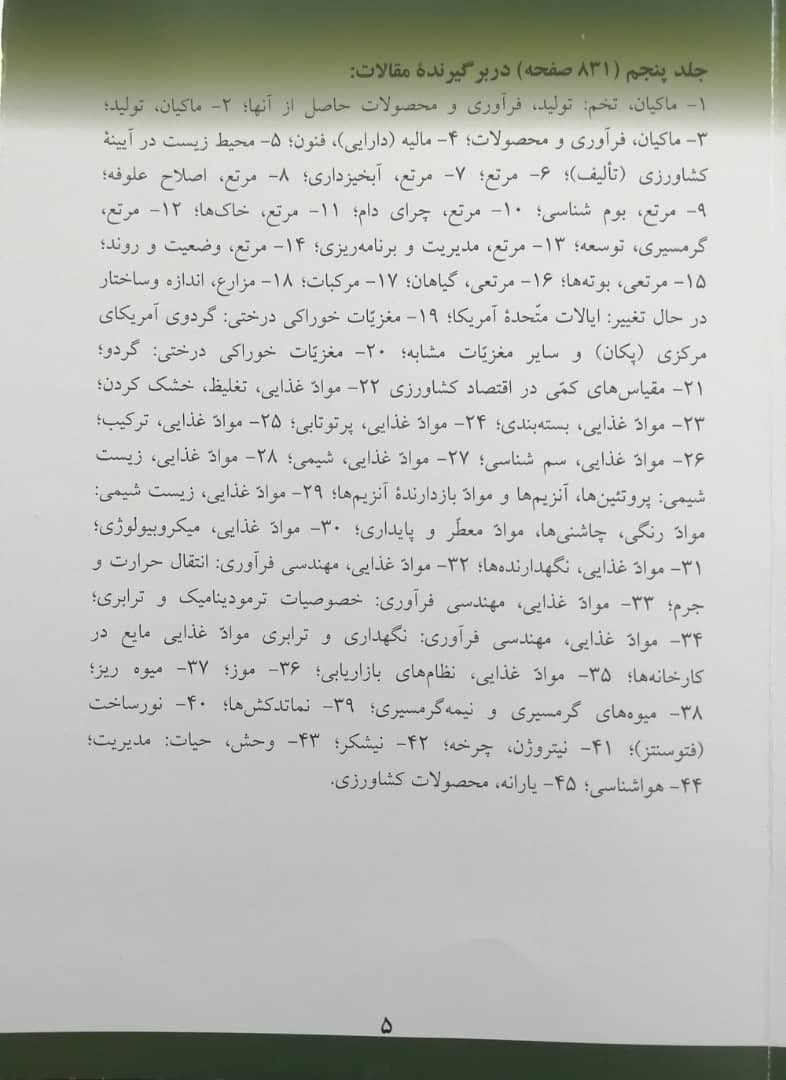 جلد پنجم (۸۳۱ صفحه) دربرگیرندهٔ مقالات:
۱- ماکیان، تخم: تولید، فرآوری و محصولات حاصل از آنها؛ ۲- ماکیان، تولید؛
۳- ماکیان، فرآوری و محصولات؛ ۴- مالیه (دارایی)، فنون؛ ۵- محیط زیست در آیینهٔ
کشاورزی (تألیف)؛ ۶- مرتع؛ ۷- مرتع، آبخیزداری؛ ۸- مرتع، اصلاح علوفه؛
۹- مرتع، بوم شناسی؛ ۱۰- مرتع، چرای دام؛ ۱۱- مرتع، خاک‌ها؛ ۱۲- مرتع،
گرمسیری، توسعه؛ ۱۳- مرتع، مدیریت و برنامه‌ریزی؛ ۱۴- مرتع، وضعیت و روند؛
۱۵- مرتعی، بوته‌ها؛ ۱۶- مرتعی، گیاهان؛ ۱۷- مرکبات؛ ۱۸- مزارع، اندازه وساختار
در حال تغییر: ایالات متّحدهٔ آمریکا؛ ۱۹- مغزیّات خوراکی درختی: گردوی آمریکای
مرکزی (پکان) و سایر مغزیّات مشابه؛ ۲۰- مغزیّات خوراکی درختی: گردو؛
۲۱- مقیاس‌های کمّی در اقتصاد کشاورزی ۲۲- موادّ غذایی، تغلیظ، خشک کردن؛
۲۳- موادّ غذایی، بسته‌بندی؛ ۲۴- موادّ غذایی، پرتوتابی؛ ۲۵- موادّ غذایی، ترکیب؛
۲۶- موادّ غذایی، سم شناسی؛ ۲۷- موادّ غذایی، شیمی؛ ۲۸- موادّ غذایی، زیست
شیمی: پروتئین‌ها، آنزیم‌ها و موادّ بازدارندهٔ آنزیم‌ها؛ ۲۹- موادّ غذایی، زیست شیمی:
موادّ رنگی، چاشنی‌ها، موادّ معطّر و پایداری؛ ۳۰- موادّ غذایی، میکروبیولوژی؛
۳۱- موادّ غذایی، نگهدارنده‌ها؛ ۳۲- موادّ غذایی، مهندسی فرآوری: انتقال حرارت و
جرم؛ ۳۳- موادّ غذایی، مهندسی فرآوری: خصوصیات ترمودینامیک و ترابری؛
۳۴- موادّ غذایی، مهندسی فرآوری: نگهداری و ترابری موادّ غذایی مایع در
کارخانه‌ها؛ ۳۵- موادّ غذایی، نظام‌های بازاریابی؛ ۳۶- موز؛ ۳۷- میوه ریز؛
۳۸- میوه‌های گرمسیری و نیمه‌گرمسیری؛ ۳۹- نماتدکش‌ها؛ ۴۰- نورساخت
(فتوسنتز)؛ ۴۱- نیتروژن، چرخه؛ ۴۲- نیشکر؛ ۴۳- وحش، حیات: مدیریت؛
۴۴- هواشناسی؛ ۴۵- یارانه، محصولات کشاورزی.
۵